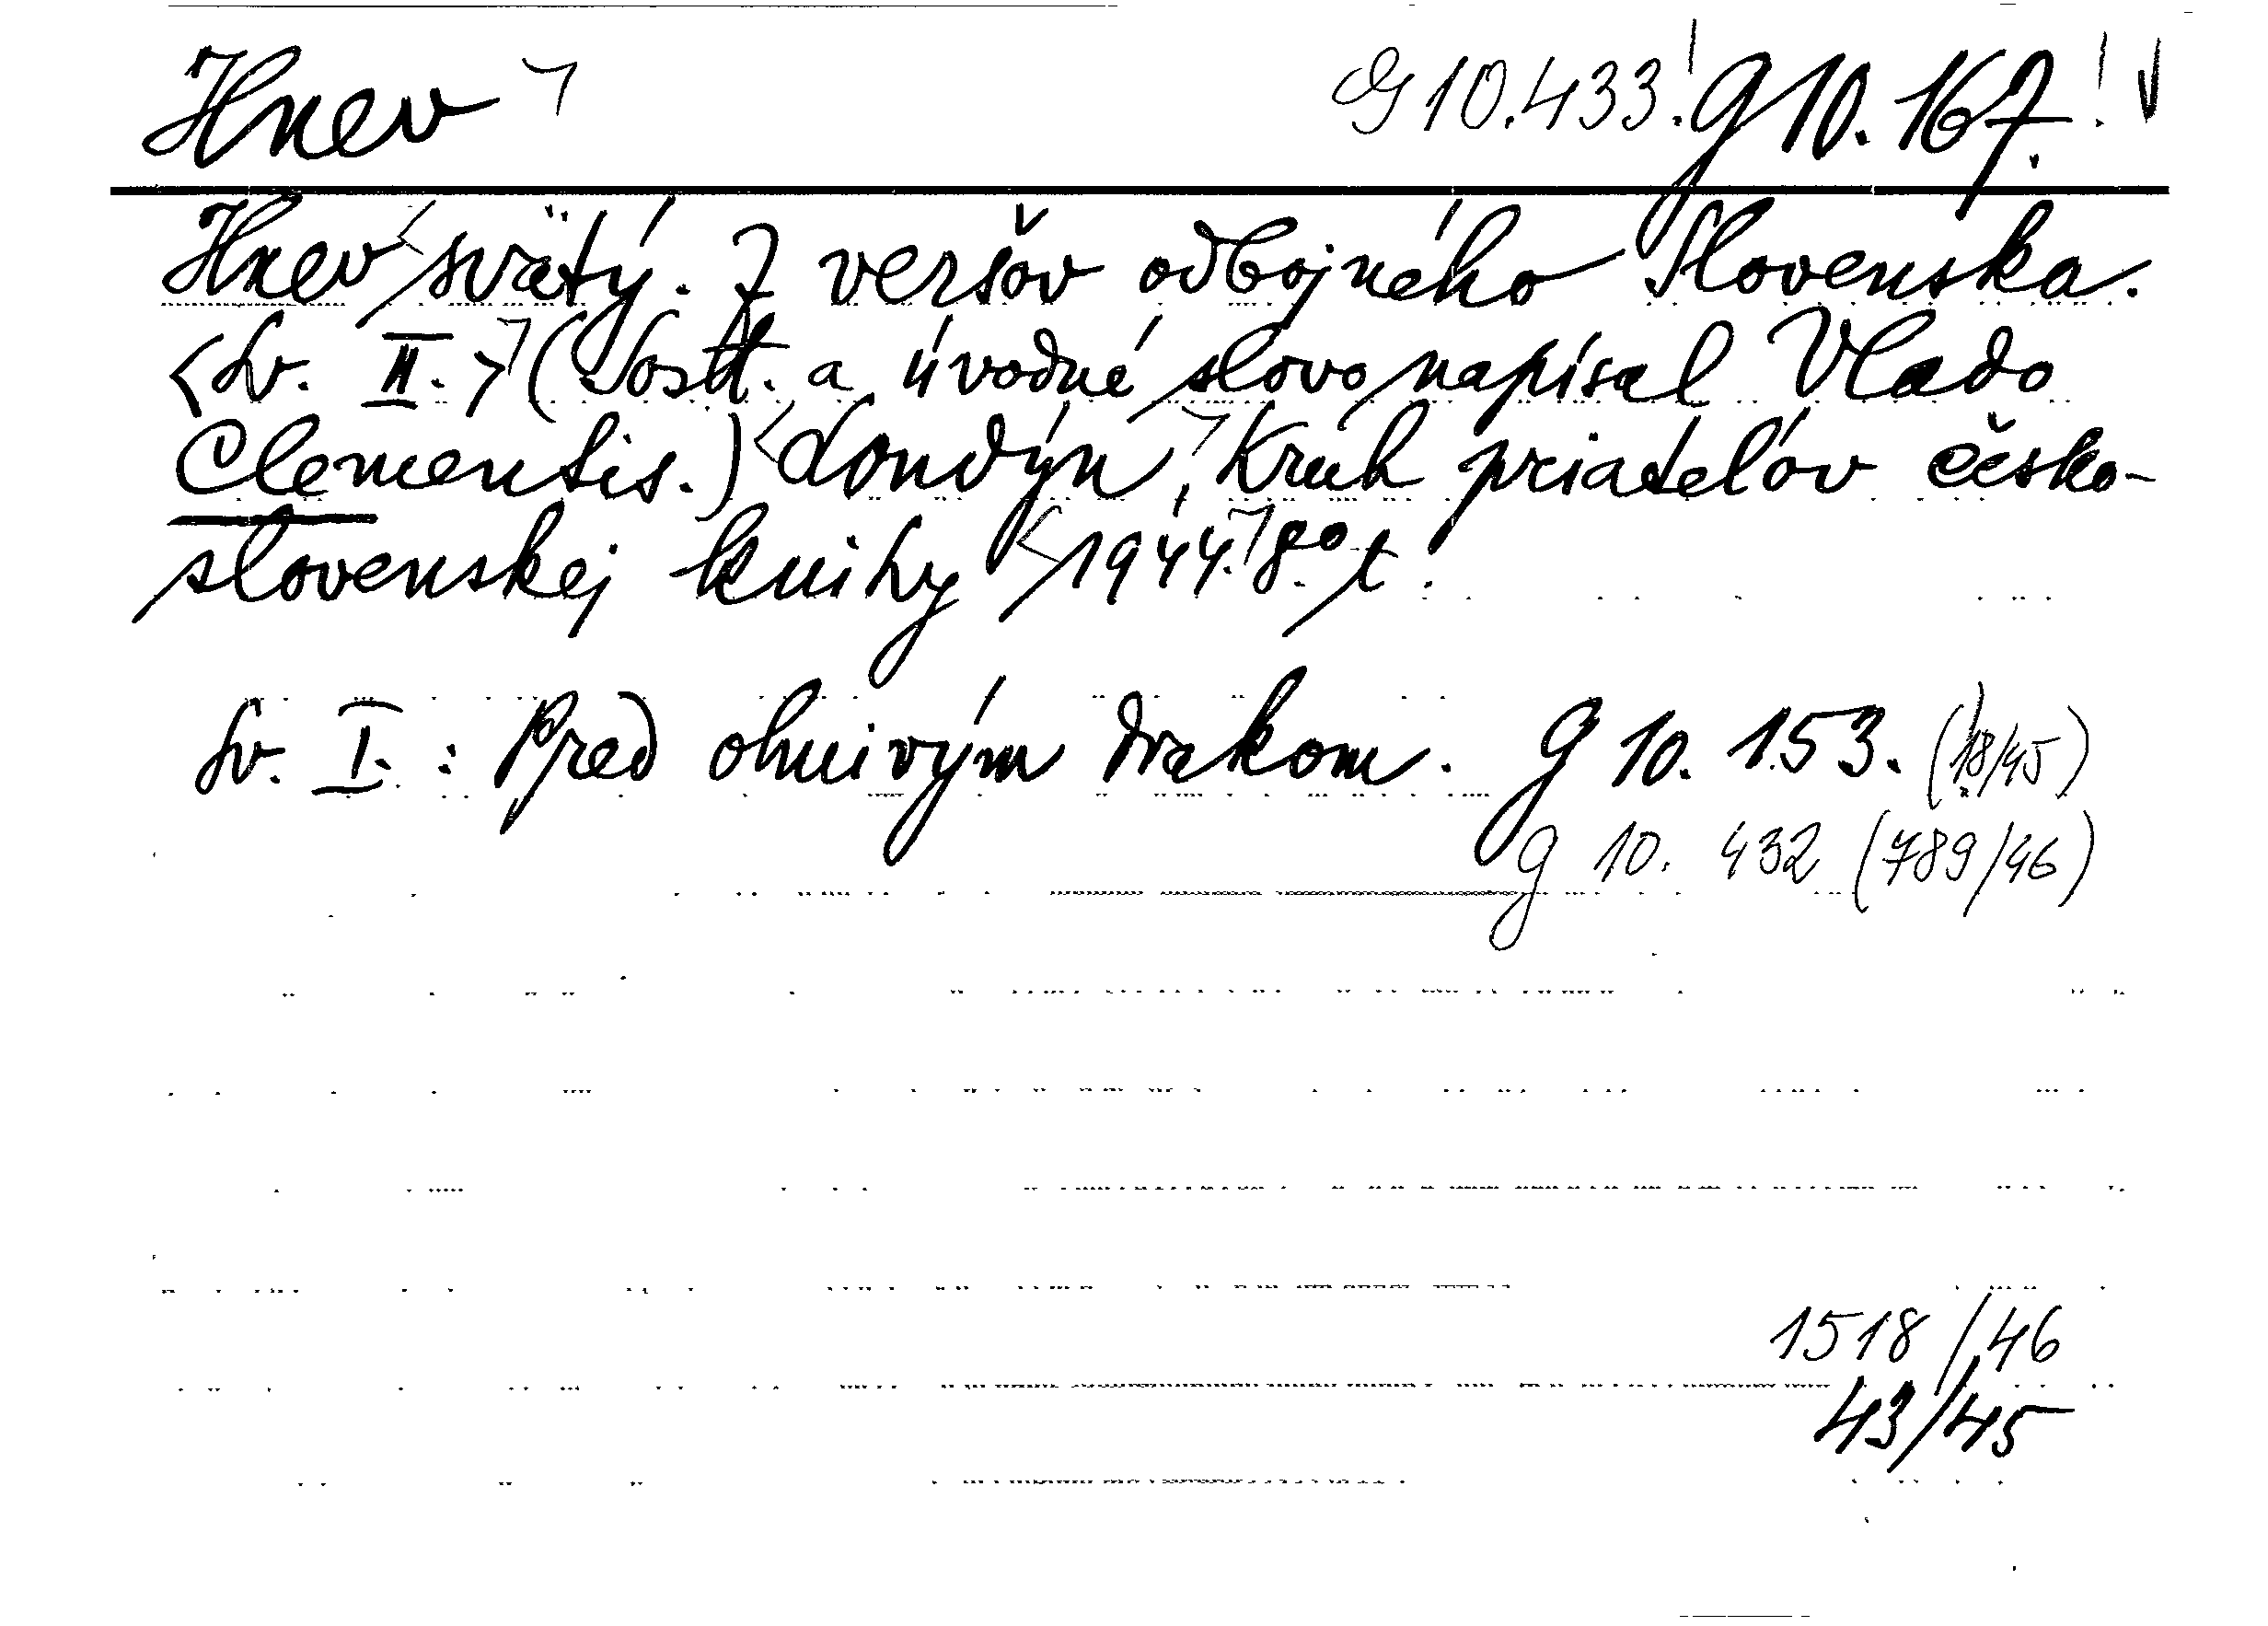 Hnev G 10.433! G 10.167.!
Hnev svätý. Z veršov odbojného Slovenska.
<Sv. II.> (Sost. a úvodné slovo napísal Vlado
Clementis.) Londýn, Kruh priateľov česko-
slovenskej knihy 1944. 8° t.
Sv. I.: Pred ohnivým drakom. G 10.153. (18/45)
G 10.432 (789/46)
1518/46
43/45